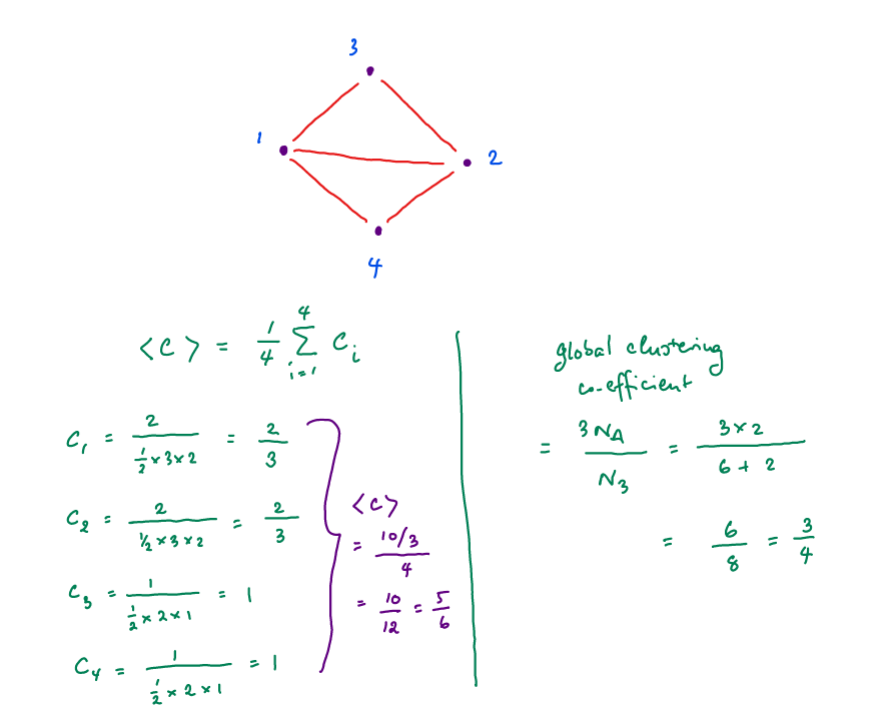 3
1
2
4
<c> = 1/4 4∑i=1 Ci
C1 = 2 / (1/2 × 3 × 2) = 2/3
C2 = 2 / (1/2 × 3 × 2) = 2/3
C3 = 1 / (1/2 × 2 × 1) = 1
C4 = 1 / (1/2 × 2 × 1) = 1
<c>
= 10/3 / 4
= 10/12 = 5/6
global clustering
co-efficient
= 3NΔ / N3 = 3×2 / 6+2
= 6/8 = 3/4